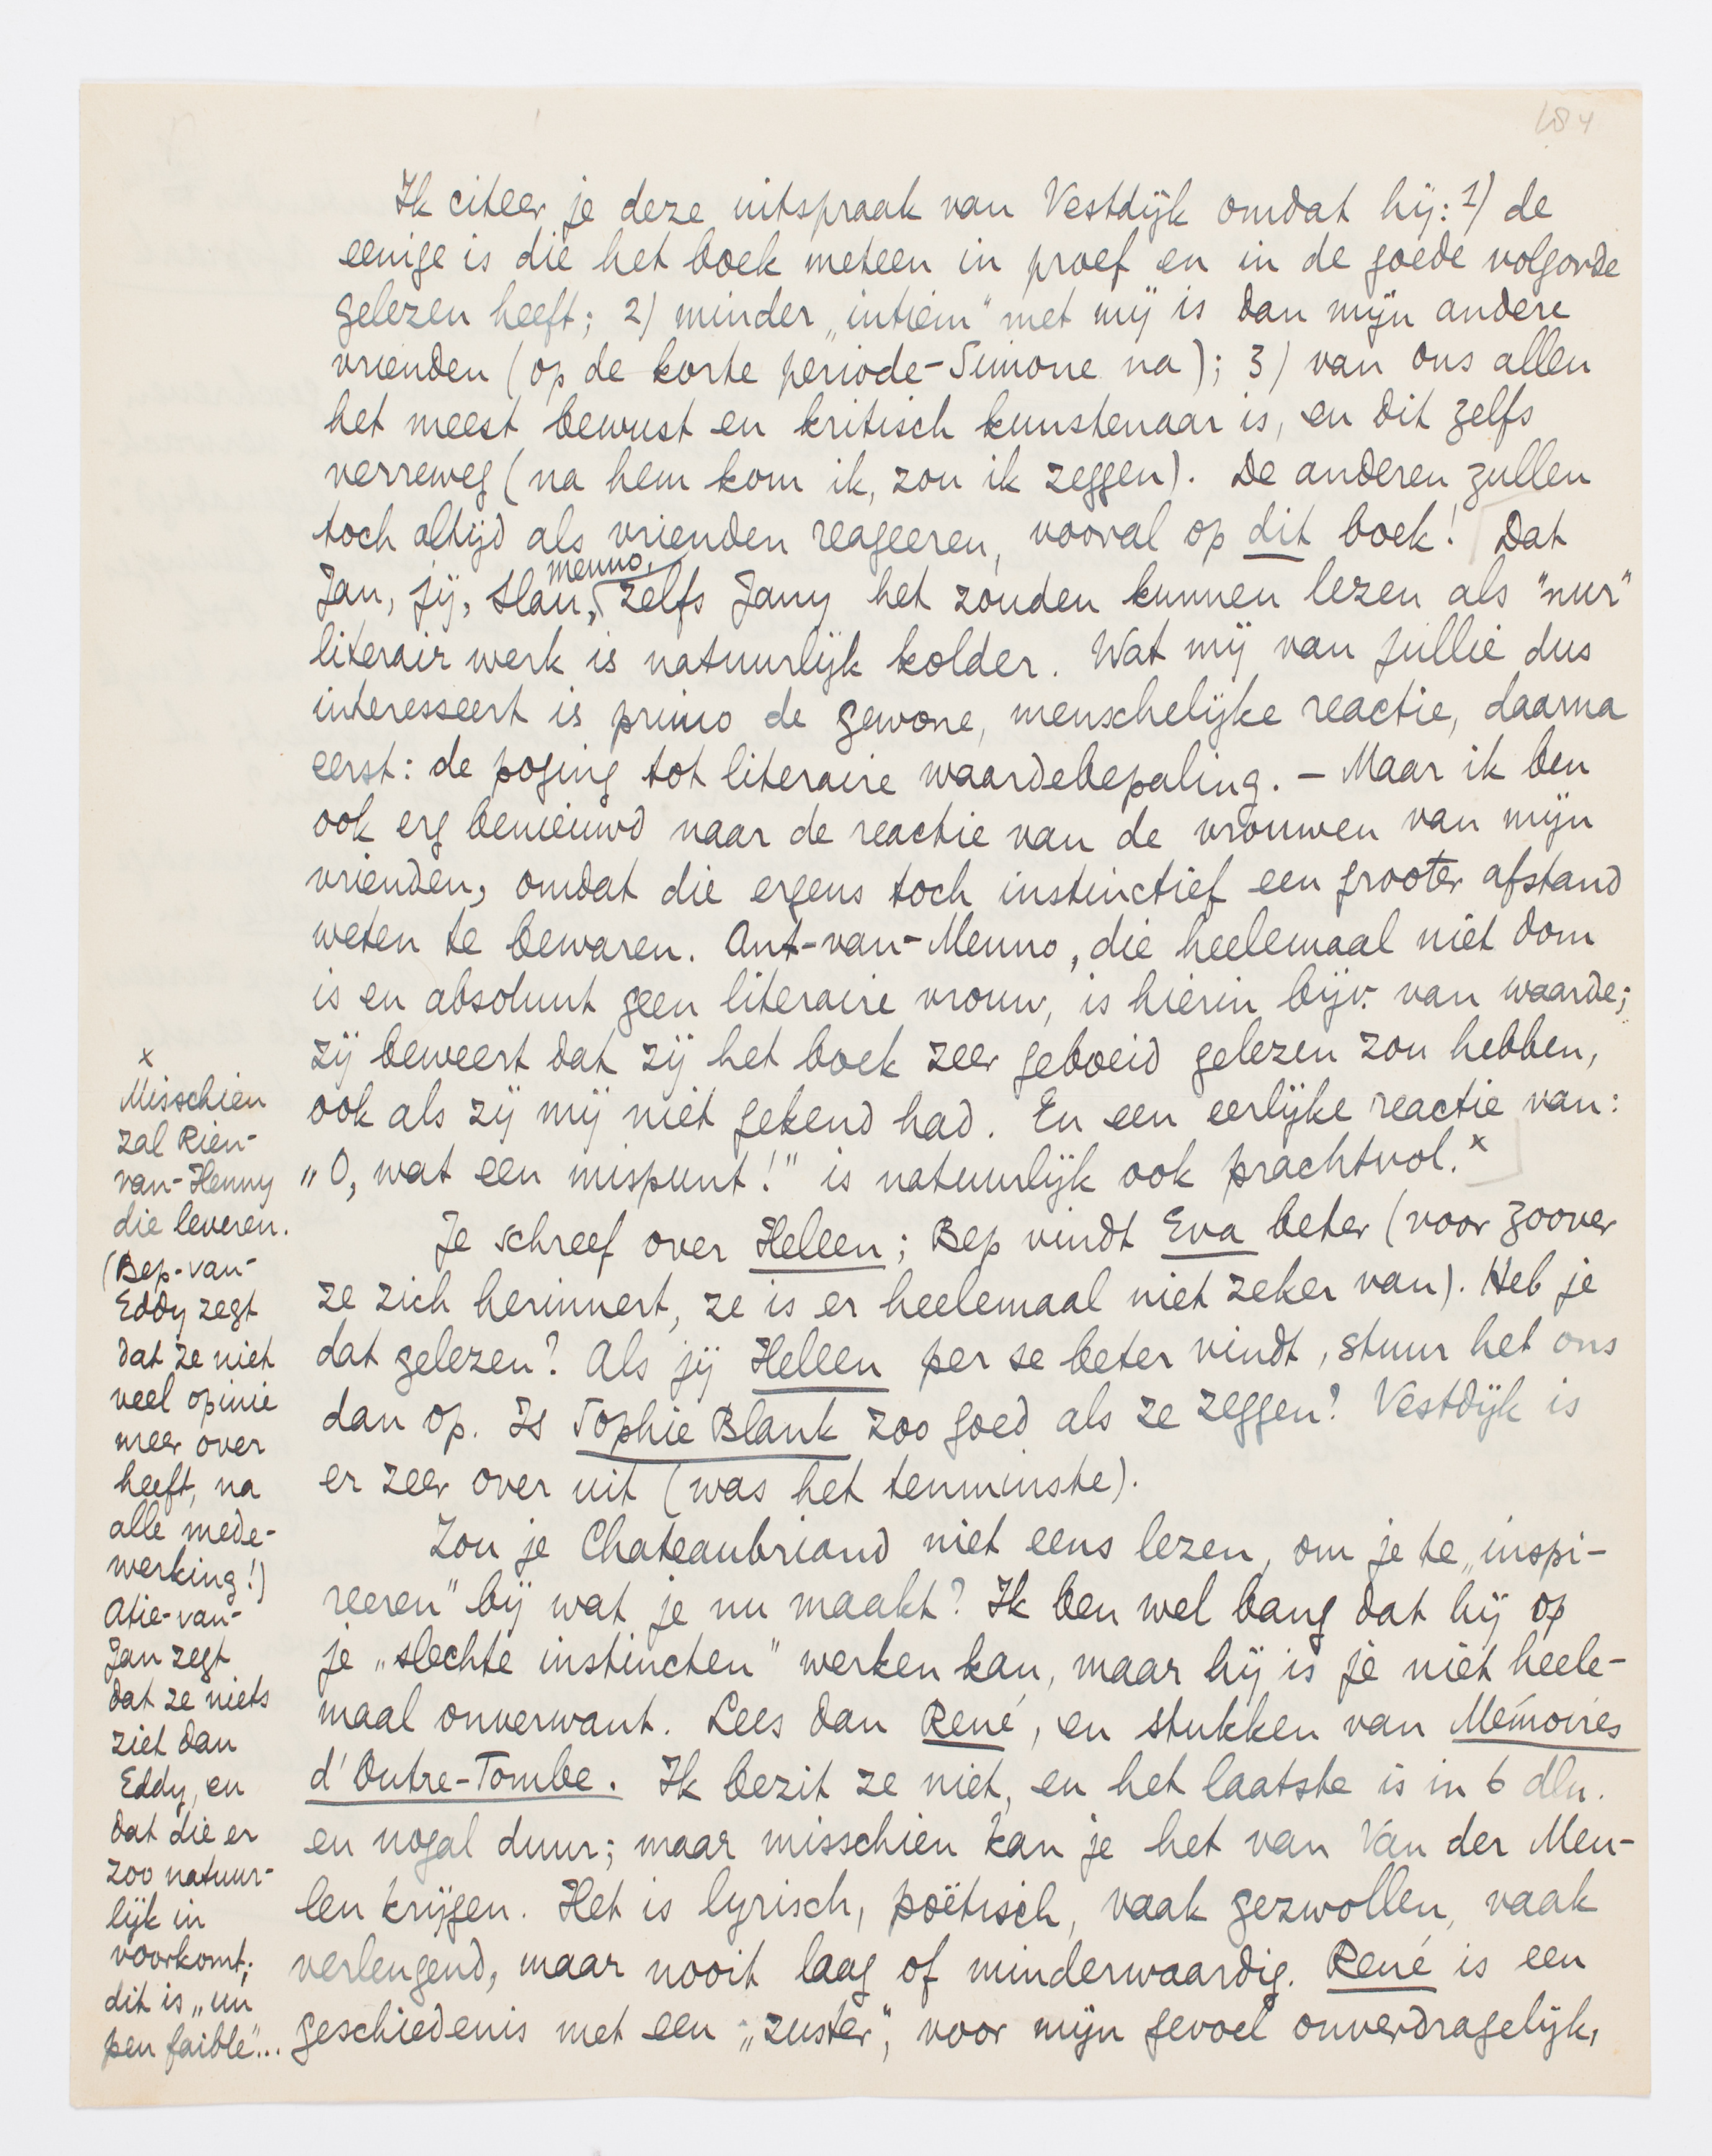 184
Ik citeer je deze uitspraak van Vestdijk omdat hij: 1) de
eenige is die het boek meteen in proef en in de goede volgorde
gelezen heeft; 2) minder „intiem" met mij is dan mijn andere
vrienden (op de korte periode-Simone na); 3) van ons allen
het meest bewust en kritisch kunstenaar is, en dit zelfs
verreweg (na hem kom ik, zou ik zeggen). De anderen zullen
toch altijd als vrienden reageeren, vooral op dit boek! Dat
Menno,
Jan, jij, Slau, zelfs Jany het zouden kunnen lezen als "nur"
literair werk is natuurlijk kolder. Wat mij van jullie dus
interesseert is primo de gewone, menschelijke reactie, daarna
eerst: de poging tot literaire waardebepaling. – Maar ik ben
ook erg benieuwd naar de reactie van de vrouwen van mijn
vrienden, omdat die ergens toch instinctief een grooter afstand
weten te bewaren. Ant-van-Menno, die heelemaal niet dom
is en absoluut geen literaire vrouw, is hierin bijv. van waarde;
zij beweert dat zij het boek zeer geboeid gelezen zou hebben,
ook als zij mij niet gekend had. En een eerlijke reactie van:
„O, wat een mispunt!" is natuurlijk ook prachtvol. x
Je schreef over Heleen; Bep vindt Eva beter (voor zoover
ze zich herinnert, ze is er heelemaal niet zeker van). Heb je
dat gelezen? Als jij Heleen per se beter vindt, stuur het ons
dan op. Is Sophie Blank zoo goed als ze zeggen? Vestdijk is
er zeer over uit (was het tenminste).
Zou je Chateaubriand niet eens lezen, om je te „inspi-
reeren" bij wat je nu maakt? Ik ben wel bang dat hij op
je „slechte instincten" werken kan, maar hij is je niet heele-
maal onverwant. Lees dan René, en stukken van Mémoires
d'Outre-Tombe. Ik bezit ze niet, en het laatste is in 6 dln.
en nogal duur; maar misschien kan je het van Van der Meu-
len krijgen. Het is lyrisch, poëtisch, vaak gezwollen, vaak
verlengend, maar nooit laag of minderwaardig. René is een
geschiedenis met een „zuster", voor mijn gevoel onverdragelijk,
x
Misschien
zal Rien-
van-Henny
die leveren.
(Bep-van-
Eddy zegt
dat ze niet
veel opinie
meer over
heeft, na
alle mede-
werking!)
Atie-van-
Jan zegt
dat ze niets
ziet dan
Eddy, en
dat die er
zoo natuur-
lijk in
voorkomt;
dit is „un
peu faible"...